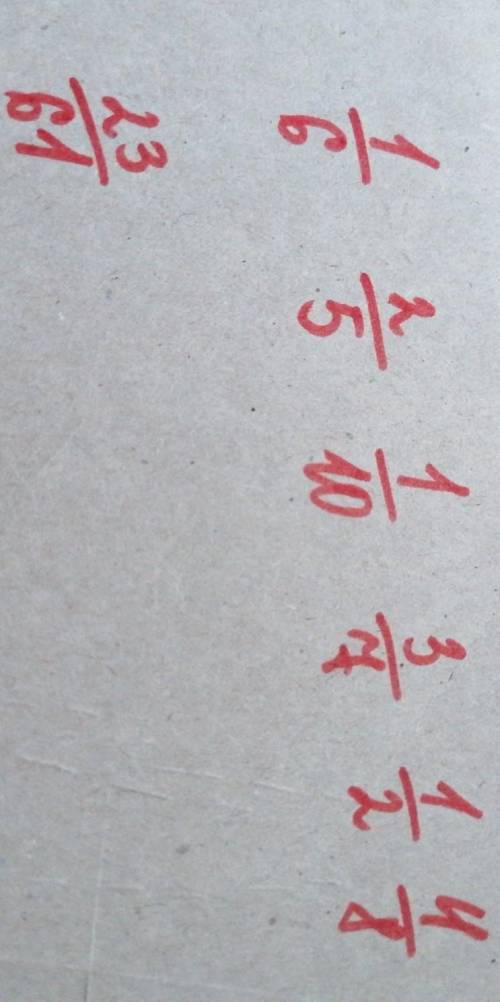 1/6 2/5 1/10 3/7 1/2 4/8
23/61